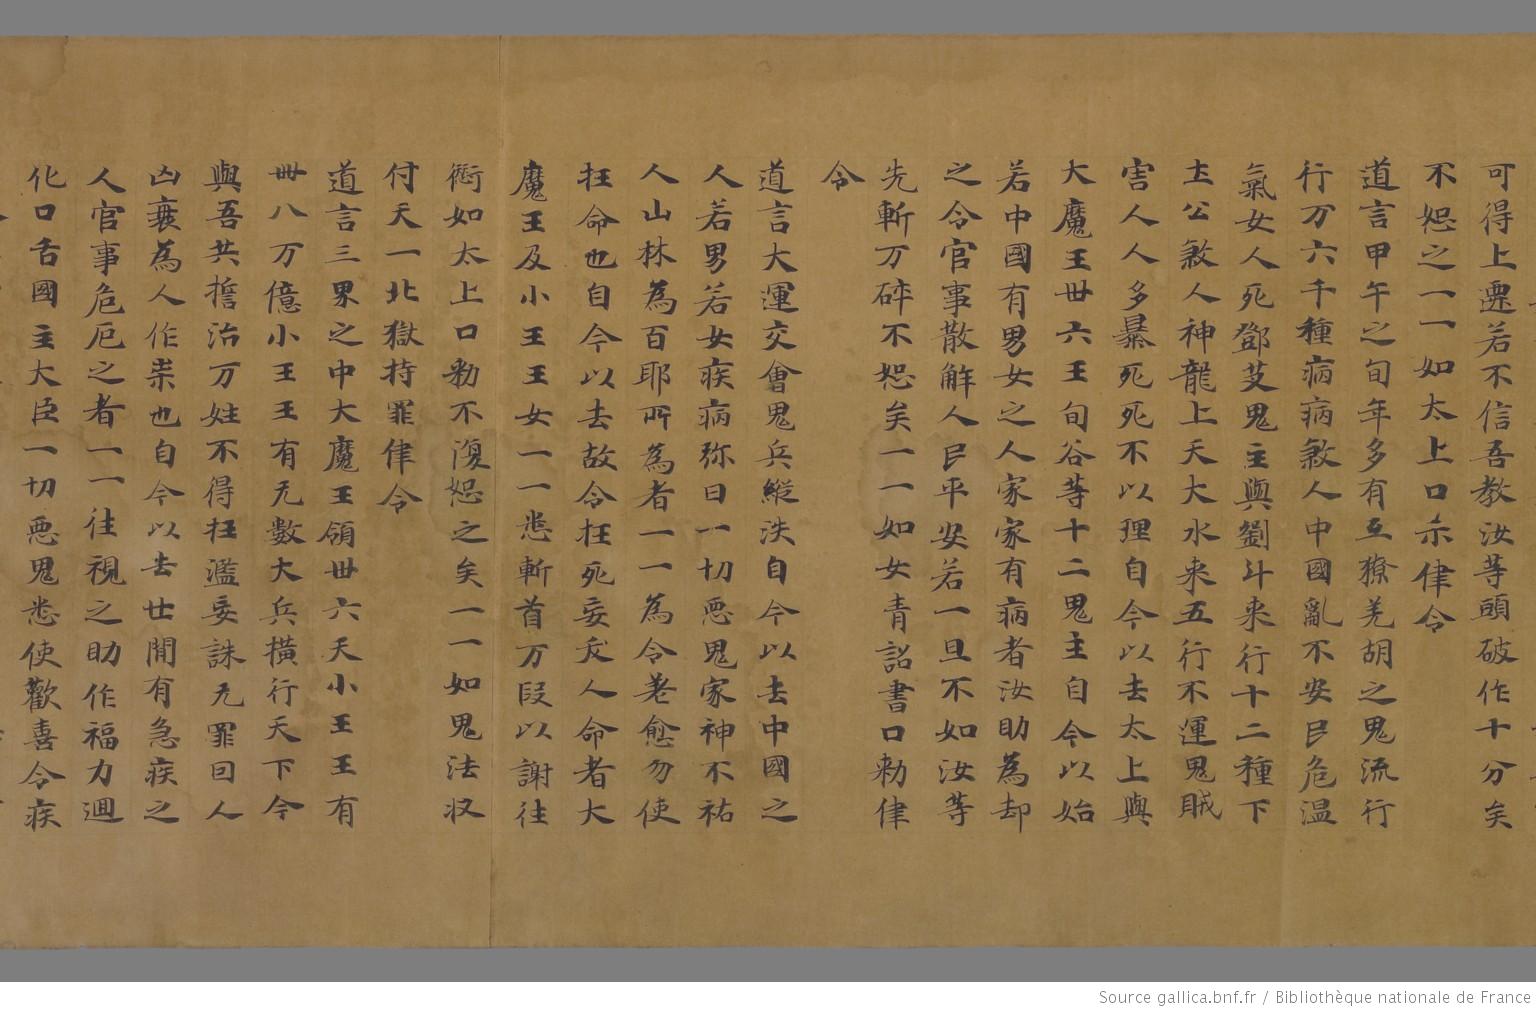 可得上遷若不信吾教汝等頭破作十分矣
不恕之一一如太上口示律令
道言甲午之旬年多有互獠羌胡之鬼流行
行万六千種病病煞人中國亂不安民危溫
氣女人死鄧艾鬼主與劉斗来行十二種下
士公煞人神龍上天大水来五行不運鬼賊
害人人多暴死死不以理自今以去太上與
大魔王卅六王旬谷等十二鬼主自今以始
若中國有男女之人家家有病者汝助為却
之令官事散解人民平安若一旦不如汝等
先斬万碎不恕矣一一如女青詔書口勑律
令
道言大運交會鬼兵縱泆自今以去中國之
人若男若女疾病弥日一切惡鬼家神不祐
人山林為百耶所為者一一為令差愈勿使
狂命也自今以去故令狂死妄煞人命者大
魔王及小王王女一一悉斬首万段以謝往
衔如太上口勑不復恕之矣一一如鬼法収
付天一北獄持罪律令
道言三界之中大魔王領卅六天小王王有
卌八万億小王王有无數大兵橫行天下今
與吾共擔治万姓不得狂濫妄誅无罪囙人
凶衰為人作祟也自今以去世間有急疾之
人官事危厄之者一一往視之助作福力迴
化口舌國主大臣一切惡鬼悉使歡喜令疾